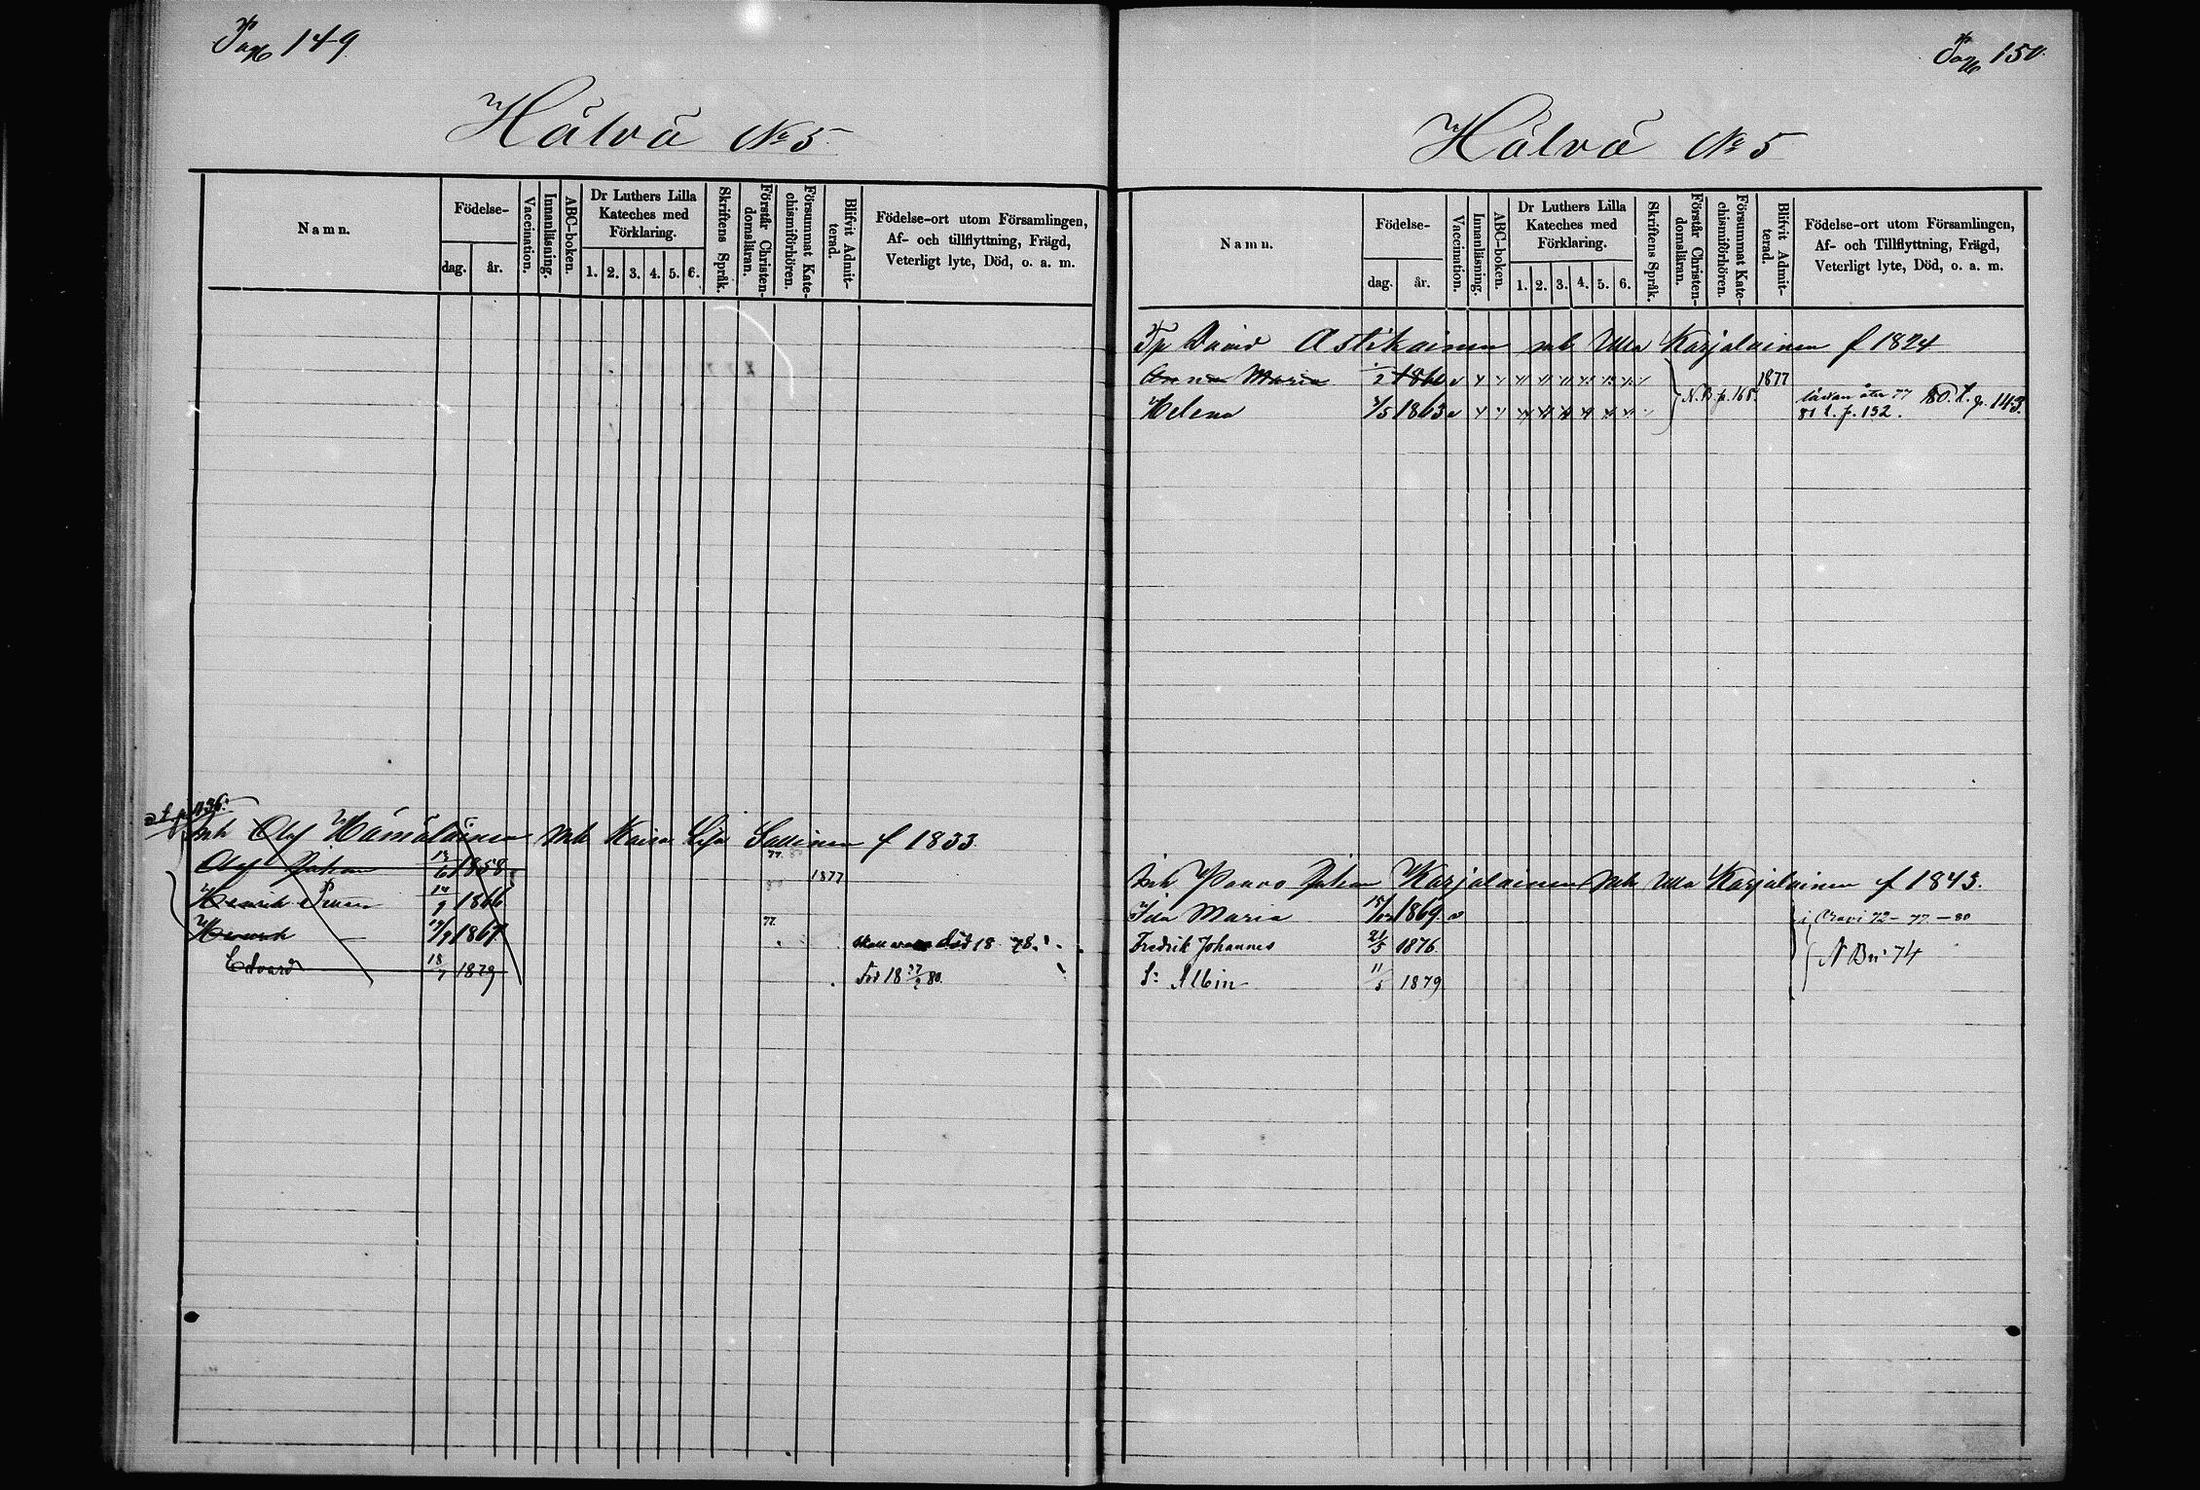 Pag 149
Hälvä No 5
Namn.
Födelse-
dag.
år.
Vaccination.
Innanläsning.
ABC-boken.
Dr Luthers Lilla
Kateches med
Förklaring.
1. 2. 3. 4. 5. 6.
Skriftens Språk.
Förstår Christen-
domsläran.
Försummat Kate-
chismiförhören.
Blifvit Admit-
terad.
Födelse-ort utom Församlingen,
Af- och tillflyttning, Frägd,
Veterligt lyte, Död, o. a. m.
Olof Hämäläinen Kaisa f 1833
Olof Johan 1858 77
Henrik 1866 1877
Henrik 1867 77 död 18 78.
Edvard 18/7 1879
Pag 150
Hälvä No 5
Namn.
Födelse-
dag.
år.
Vaccination.
Innanläsning.
ABC-boken.
Dr Luthers Lilla
Kateches med
Förklaring.
1. 2. 3. 4. 5. 6.
Skriftens Språk.
Förstår Christen-
domsläran.
Försummat Kate-
chismiförhören.
Blifvit Admit-
terad.
Födelse-ort utom Församlingen,
Af- och Tillflyttning, Frägd,
Veterligt lyte, Död, o. a. m.
David Astikainen Ulla Karjalainen f 1824
Anna Maria 1877
Helena 1863 N.B. p. 168. p. 143.
81 p. 152.
Paavo Johan Karjalainen Ulla Karjalainen f 1843.
Ida Maria 1869 i 72 - 77 - 80
Fredrik Johannes 21/5 1876 74
S: Albin 11/5 1879